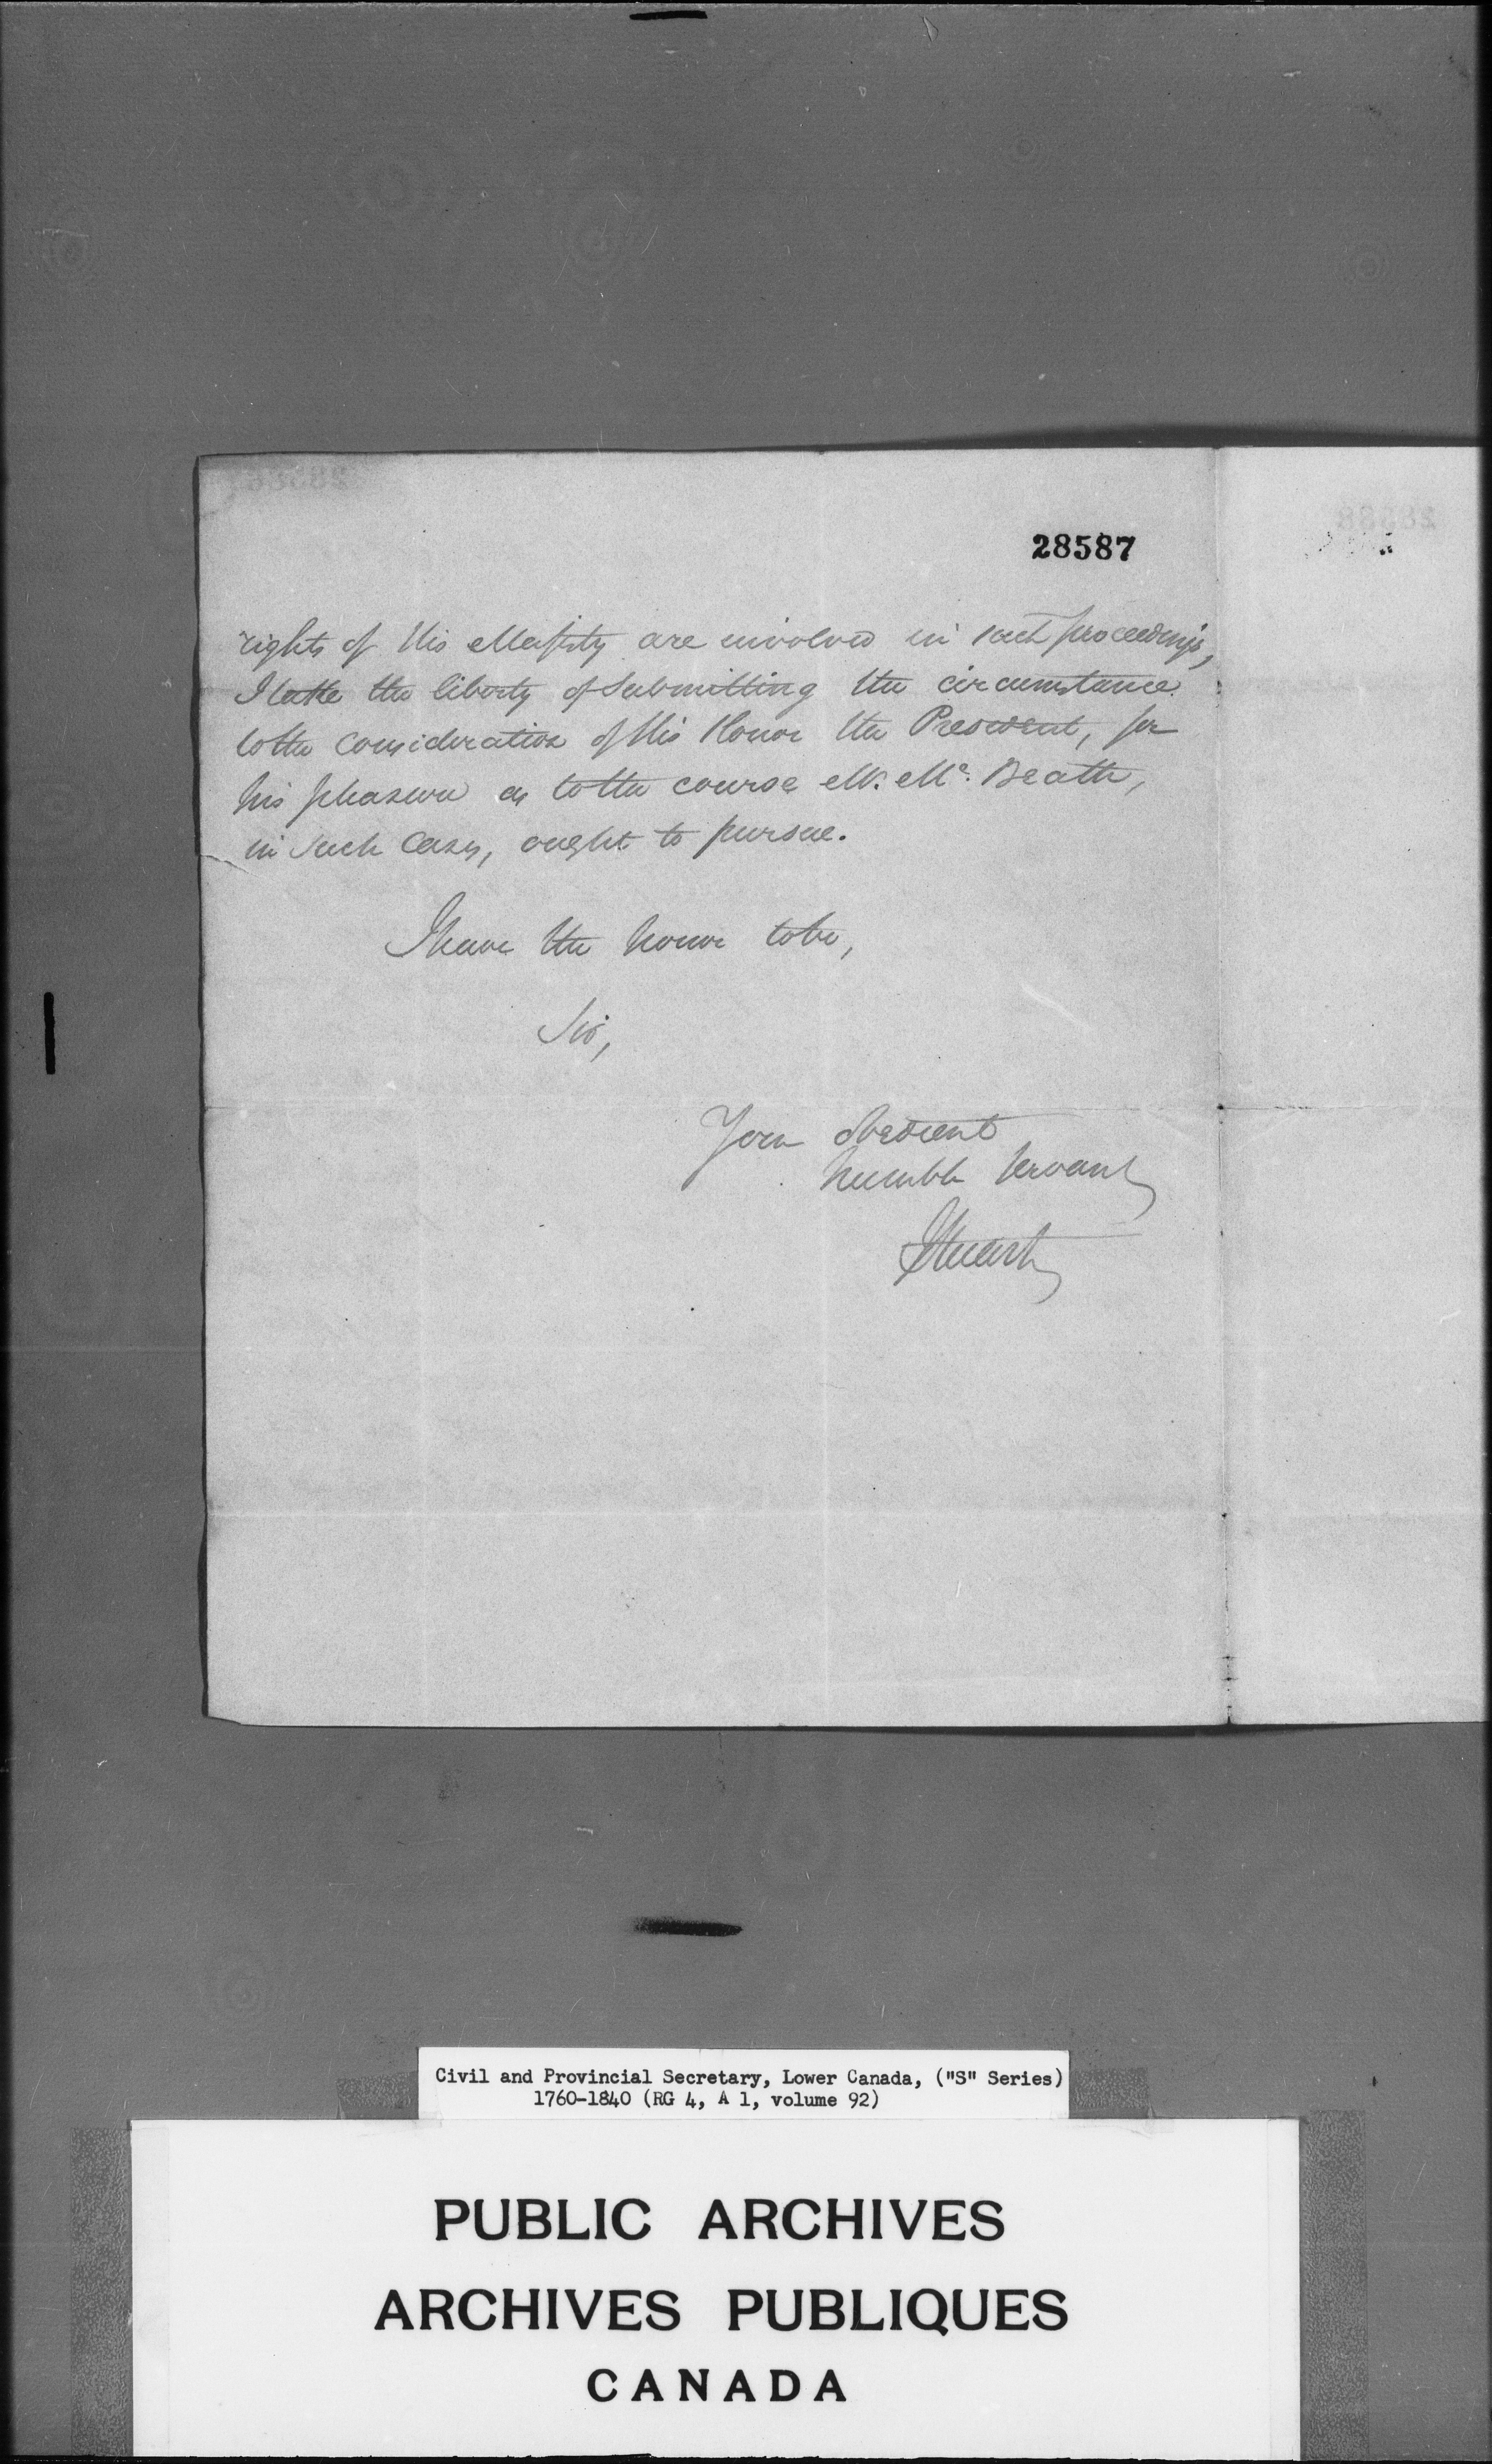 28587
rights of His Majesty are involved in such proceedings,
I take the liberty of submitting the circumstance
to the consideration of His Honor the President, for
his pleasure as to the course Mr. Mc. Beath,
in such cases, ought to pursue.
I have the honor to be,
Sir,
Your obedient
humble servant
JStuart
Civil and Provincial Secretary, Lower Canada, ("S" Series)
1760-1840 (RG 4, A 1, volume 92)
PUBLIC ARCHIVES
ARCHIVES PUBLIQUES
CANADA